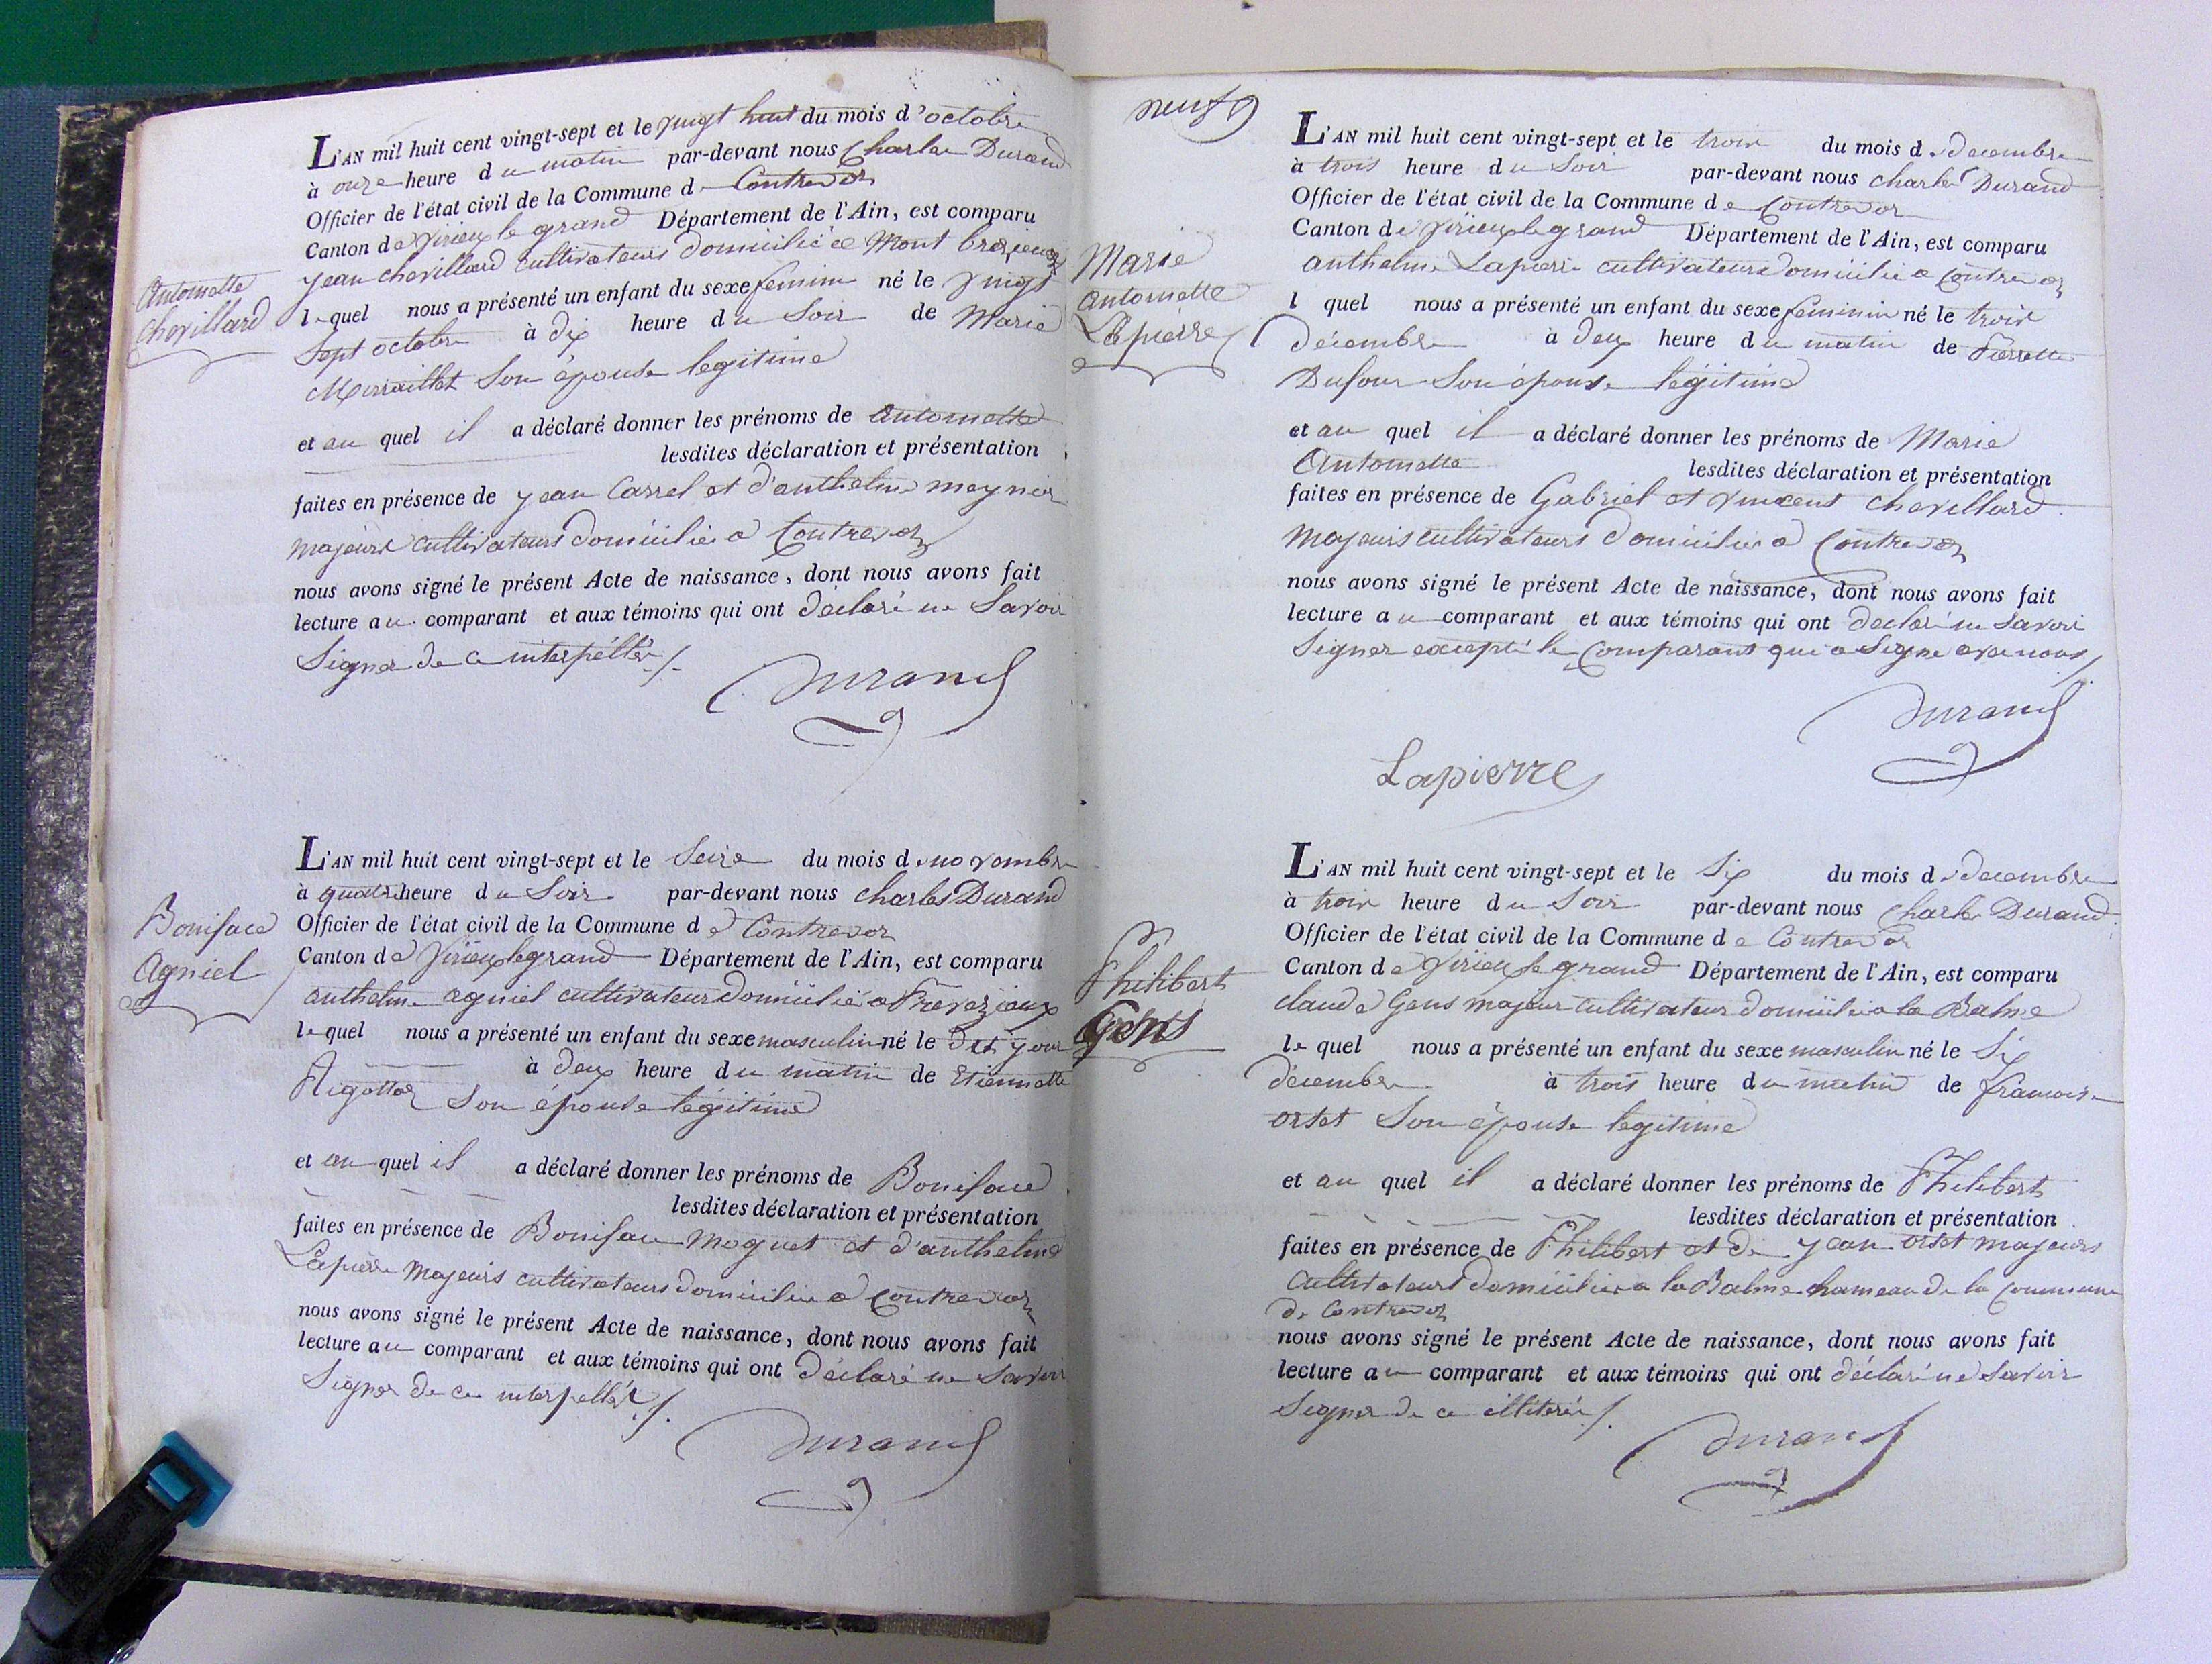 L'AN mil huit cent vingt-sept et le vingt huit du mois d'octobre
à onze heure du matin par-devant nous Charles Durand
Officier de l'état civil de la Commune de Contrevoz
Canton de Virieu le grand Département de l'Ain, est comparu
jean chevillard cultivateurs domicilié a Mont brezieux
lequel nous a présenté un enfant du sexe feminin né le vingt
Sept octobre à dix heure du Soir de Marie
Son épouse legitime
et au quel il a déclaré donner les prénoms de antoinette
lesdites déclaration et présentation
faites en présence de jean Carrel et d'anthelme meynier
majeurs cultivateurs domicilié a Contrevoz
nous avons signé le présent Acte de naissance, dont nous avons fait
lecture au comparant et aux témoins qui ont déclaré ne Savoir
Signer de ce interpéllér ./.
Durand
Antoinette
Chevillard
L'AN mil huit cent vingt-sept et le Seize du mois de novembre
à quatre heure du Soir par-devant nous charles Durand
Officier de l'état civil de la Commune de Contrevoz
Canton de Virieu le grand Département de l'Ain, est comparu
anthelme agniel cultivateur domicilié a Prevezieux
lequel nous a présenté un enfant du sexe masculin né le dit jour
à deux heure du matin de Etiennette
Rigottaz Son épouse legitime
et au quel il a déclaré donner les prénoms de Boniface
lesdites déclaration et présentation
faites en présence de Boniface Moguet et d'anthelme
Lapierre majeurs cultivateurs domicilié a Contrevoz
nous avons signé le présent Acte de naissance, dont nous avons fait
lecture au comparant et aux témoins qui ont déclaré ne Savoir
Signer de ce interpellér ./.
Durand
Boniface
Agniel
neuf 9
L'AN mil huit cent vingt-sept et le trois du mois de decembre
à trois heure du Soir par-devant nous charles Durand
Officier de l'état civil de la Commune de Contrevoz
Canton de Virieu le grand Département de l'Ain, est comparu
anthelme Lapierre cultivateurs domicilié a Contrevoz
l quel nous a présenté un enfant du sexe feminin né le trois
décembre à deux heure du matin de Pierrette
Dufour Son épouse légitime
et au quel il a déclaré donner les prénoms de Marie
Antoinette lesdites déclaration et présentation
faites en présence de Gabriel et vincent chevillard
majeurs cultivateurs domicilié a Contrevoz
nous avons signé le présent Acte de naissance, dont nous avons fait
lecture au comparant et aux témoins qui ont declaré ne Savoir
Signer excepté le Comparant qui a Signe avec nous ./.
Durand
Lapierre
Marie
antoinette
Lapierre
L'AN mil huit cent vingt-sept et le Six du mois de decembre
à trois heure du Soir par-devant nous Charles Durand
Officier de l'état civil de la Commune de Contrevoz
Canton de Virieu le grand Département de l'Ain, est comparu
claude Gens majeur cultivateur domicilié a la Balme
le quel nous a présenté un enfant du sexe masculin né le Six
décembre à trois heure du matin de francoise
ortet Son épouse legitime
et au quel il a déclaré donner les prénoms de Philibert
lesdites déclaration et présentation
faites en présence de Philibert et de jean ortet majeurs
Cultivateurs domicilié a la Balme hameau de la Commune
de Contrevoz
nous avons signé le présent Acte de naissance, dont nous avons fait
lecture au comparant et aux témoins qui ont déclaré ne Savoir
Signer de ce illiterér ./.
Durand
Philibert
Gens